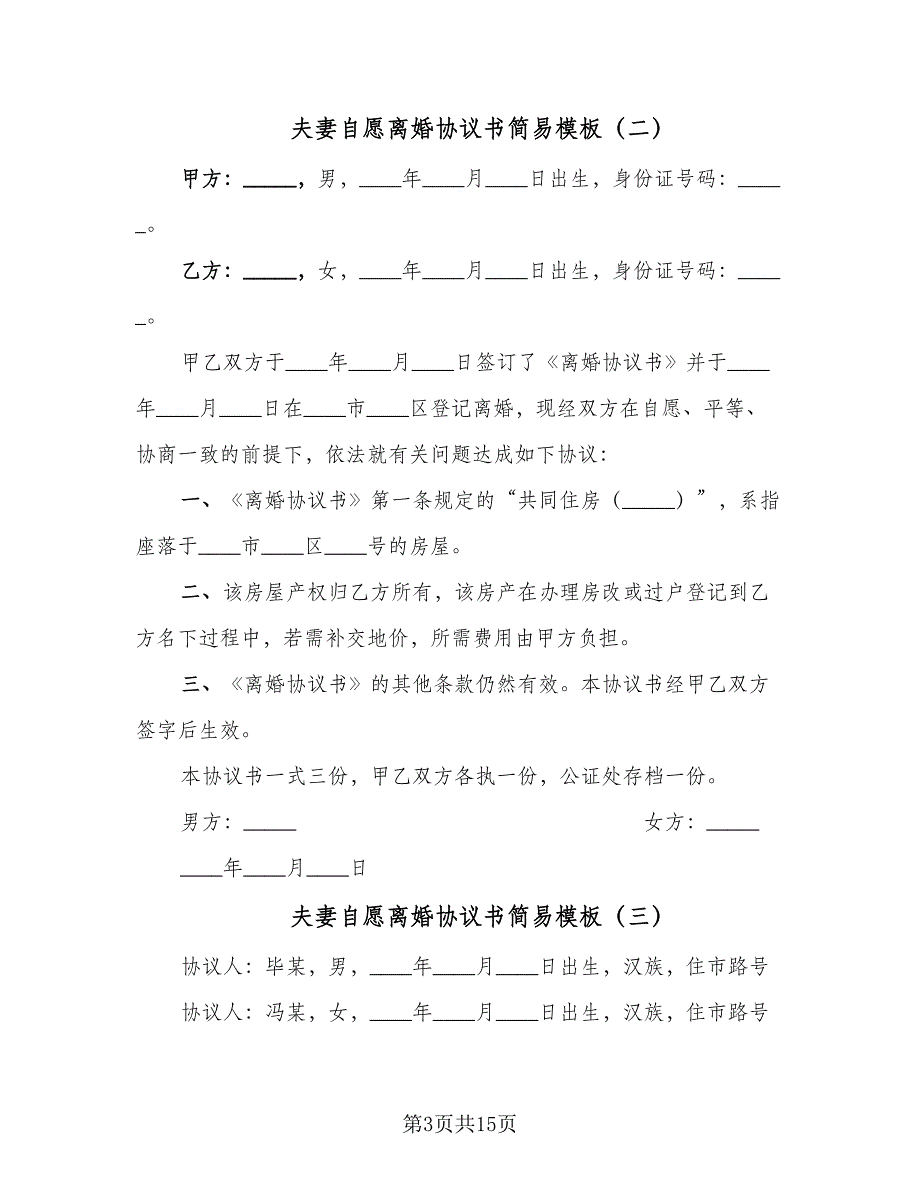 夫妻自愿离婚协议书简易模板（二）
甲方：_____，男，____年____月____日出生，身份证号码：____
_。
乙方：_____，女，____年____月____日出生，身份证号码：____
_。
甲乙双方于____年____月____日签订了《离婚协议书》并于____
年____月____日在____市____区登记离婚，现经双方在自愿、平等、
协商一致的前提下，依法就有关问题达成如下协议：
一、《离婚协议书》第一条规定的“共同住房（_____）”，系指
座落于____市____区____号的房屋。
二、该房屋产权归乙方所有，该房产在办理房改或过户登记到乙
方名下过程中，若需补交地价，所需费用由甲方负担。
三、《离婚协议书》的其他条款仍然有效。本协议书经甲乙双方
签字后生效。
本协议书一式三份，甲乙双方各执一份，公证处存档一份。
男方：_____ 女方：_____
____年____月____日
夫妻自愿离婚协议书简易模板（三）
协议人：毕某，男，____年____月____日出生，汉族，住市路号
协议人：冯某，女，____年____月____日出生，汉族，住市路号
第3页共15页